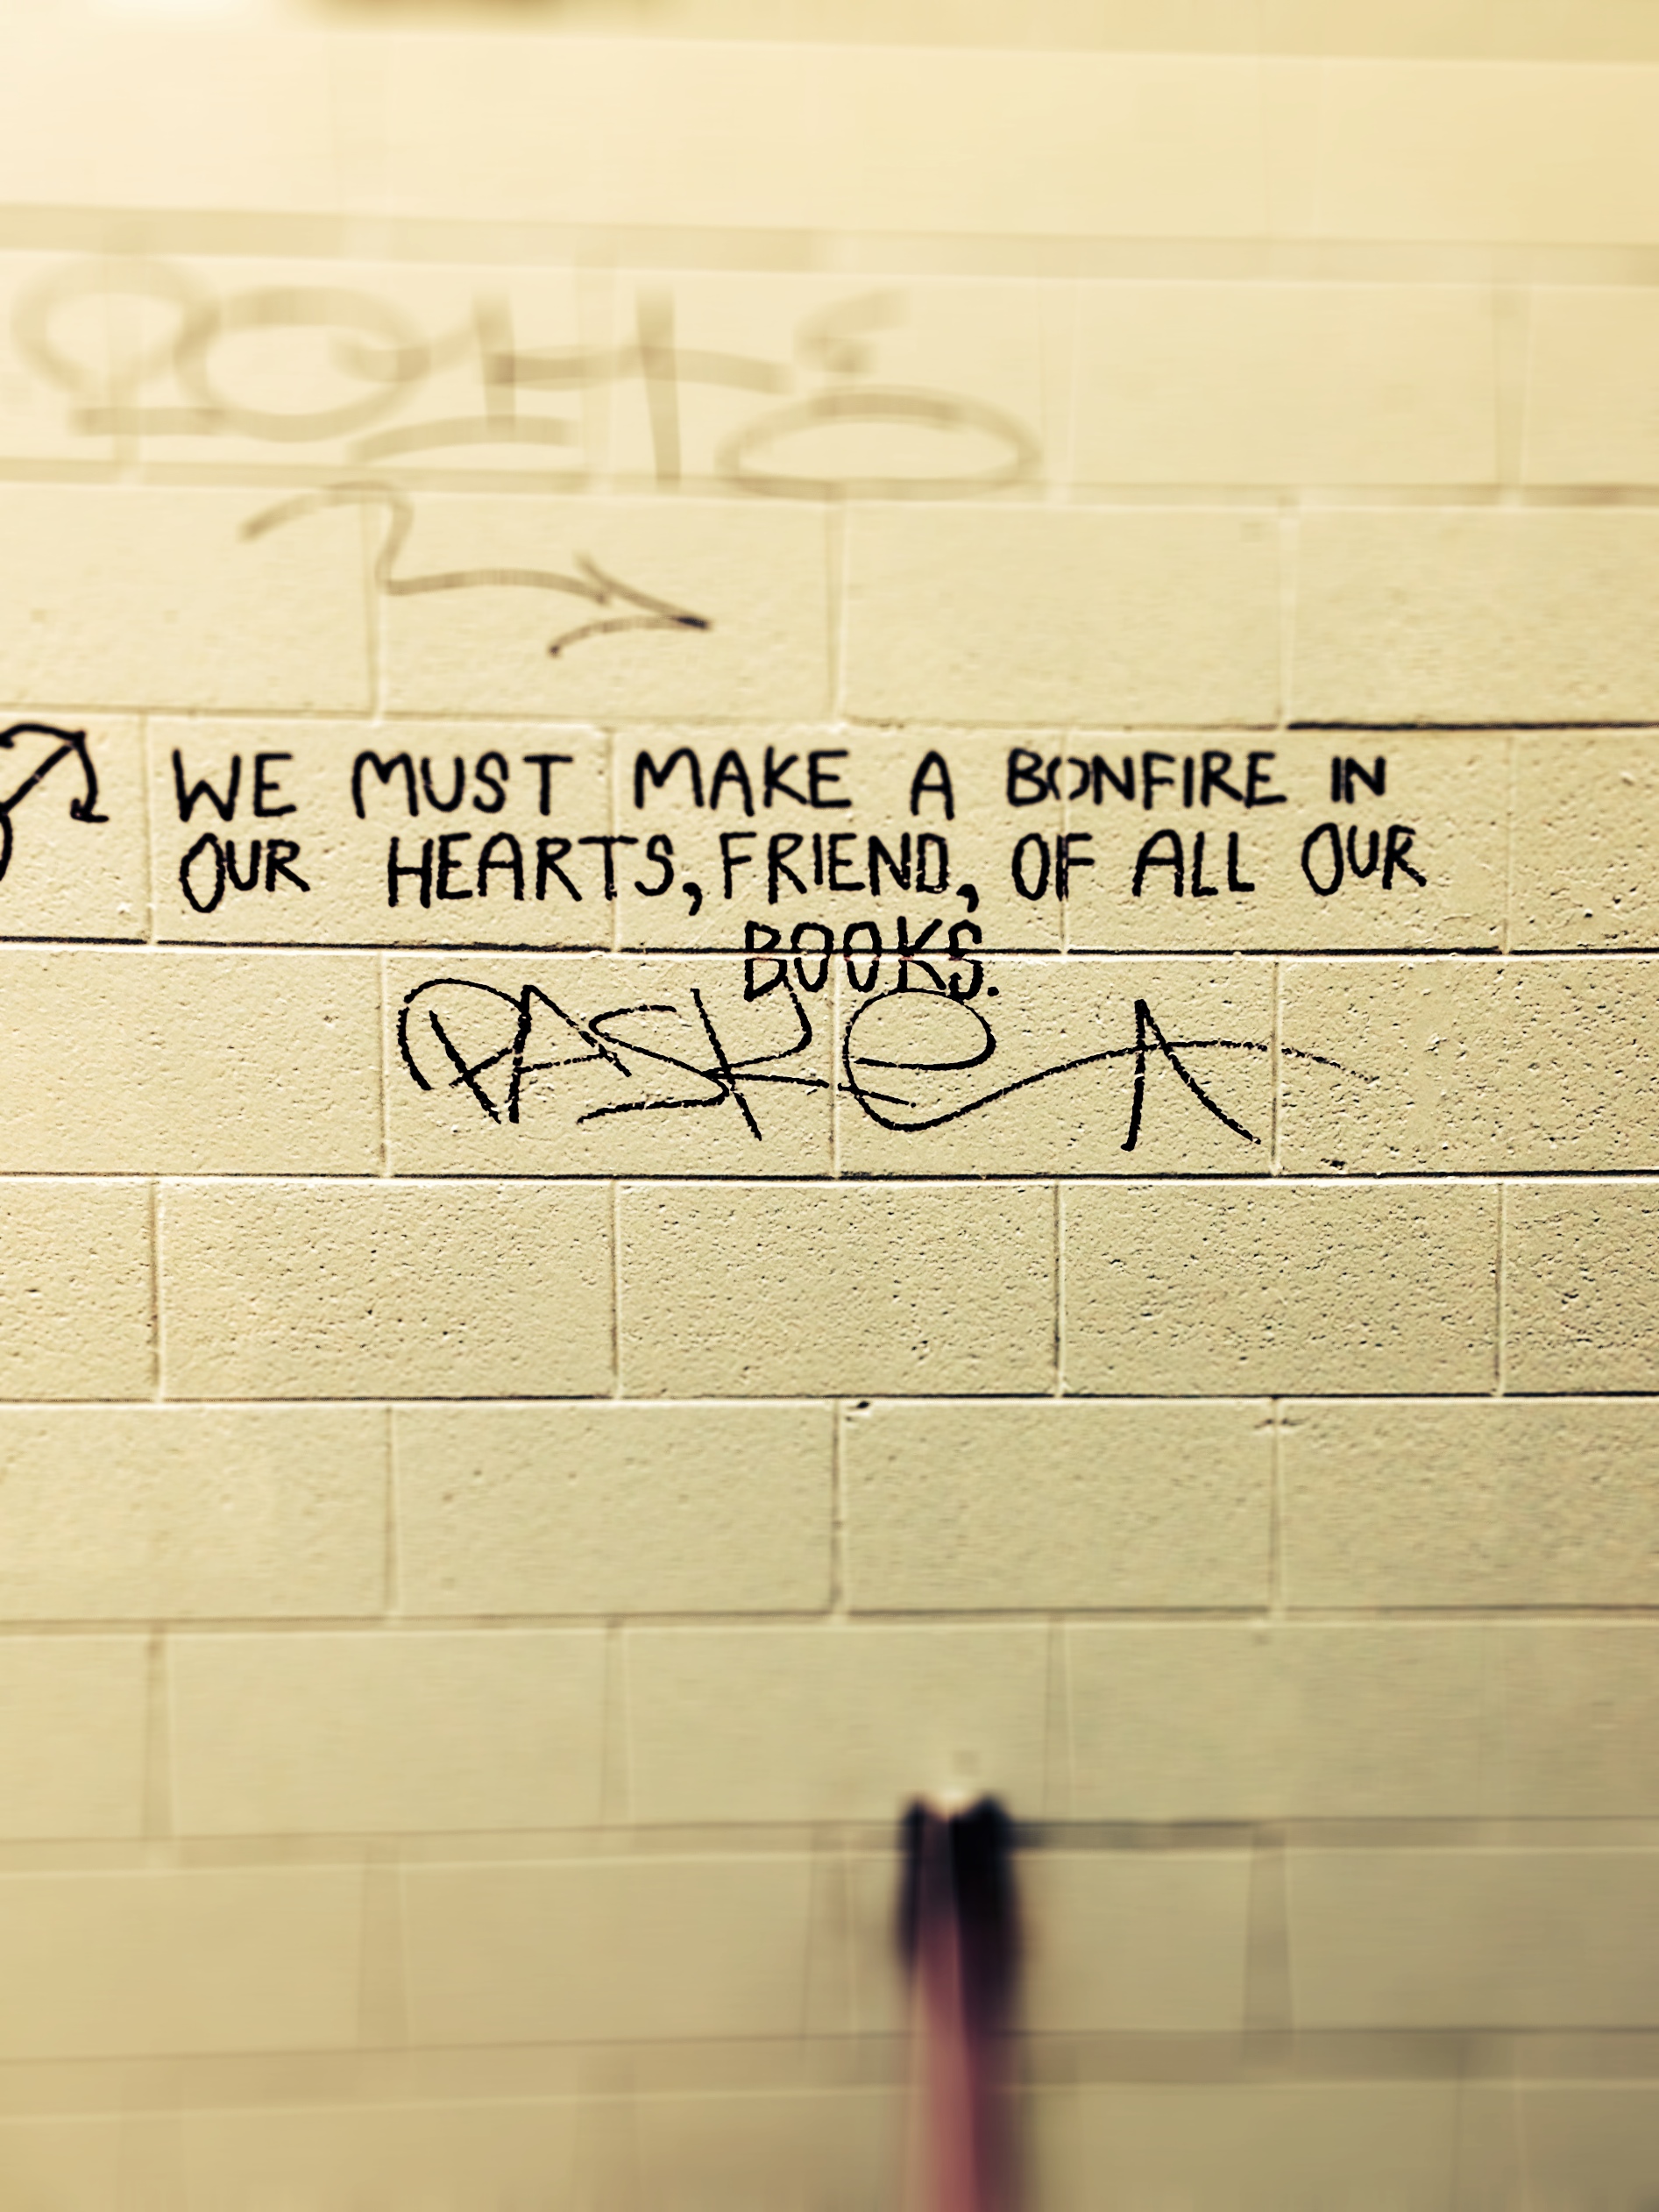 WE MUST MAKE A BONFIRE IN
OUR HEARTS, FRIEND, OF ALL OUR
BOOKS.